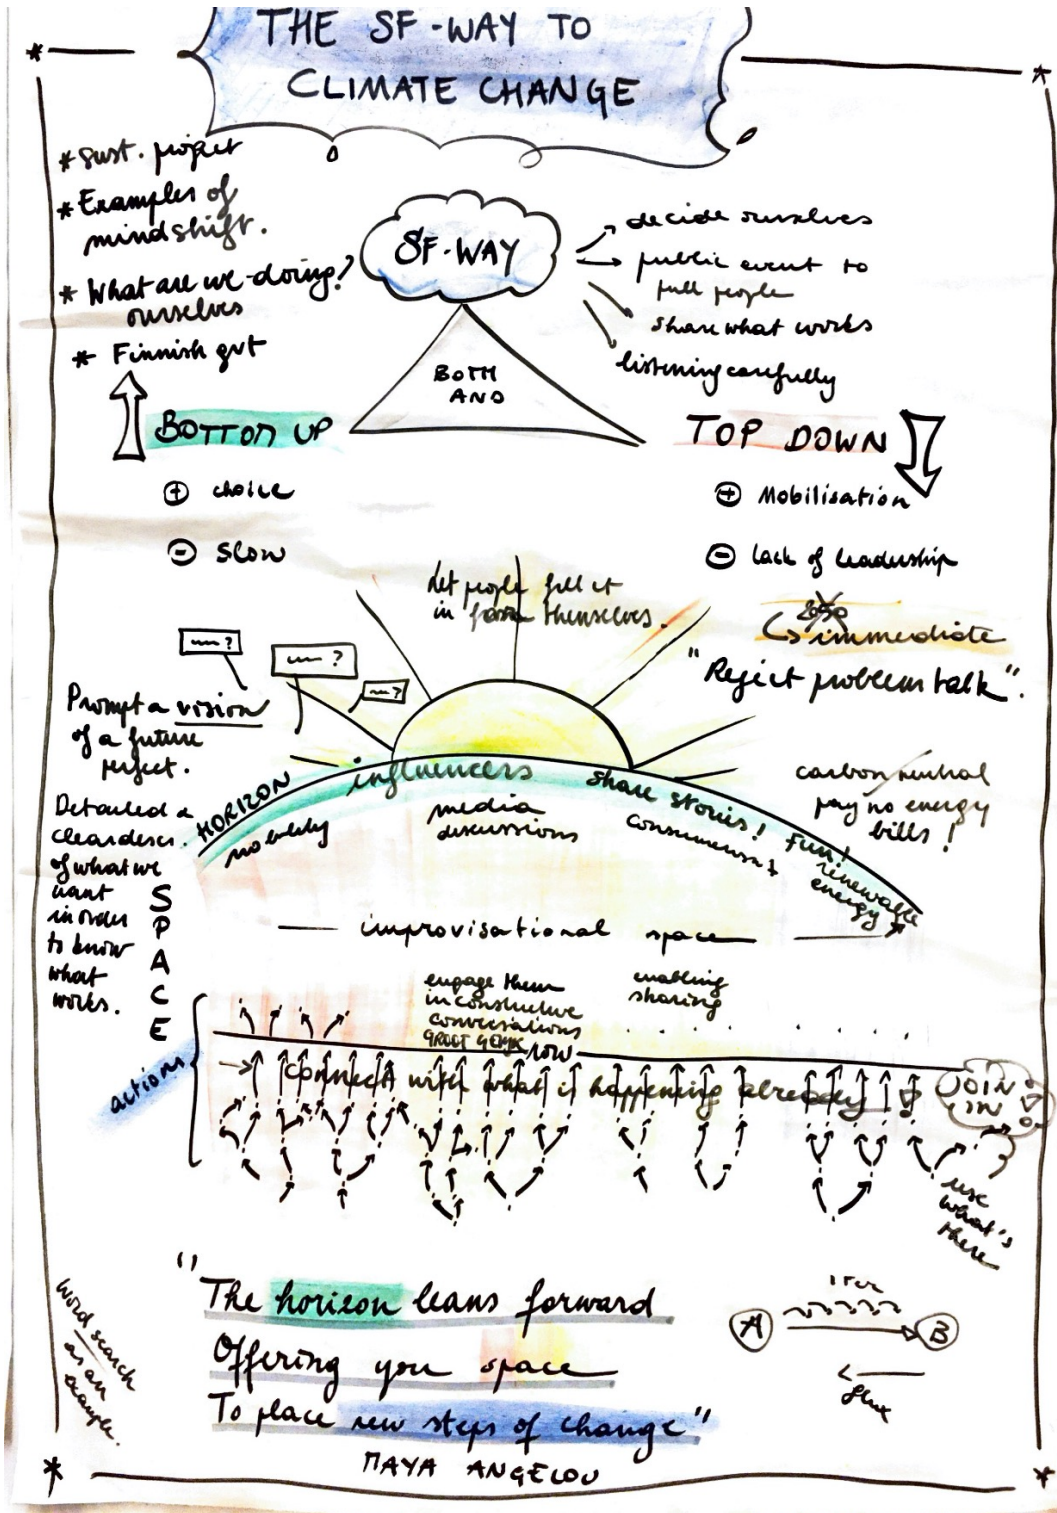 THE SF-WAY TO
CLIMATE CHANGE
* Sust. project
* Examples of
mindshift.
* What are we doing?
ourselves
* Finnish gvt
SF-WAY
decide ourselves
public event to
pull people
share what works
listening carefully
BOTH
AND
BOTTOM UP
+ choice
- slow
TOP DOWN
+ Mobilisation
- Lack of leadership
2050
immediate
"Reject problem talk".
Let people fill it
in themselves.
?
?
?
Prompt a vision
of a future
perfect.
Detailed &
clear descr.
of what we
want
in order
to know
what
works.
HORIZON
influencers
share stories!
Fun!
mobility
media
discussions
renewable
energy
carbon neutral
pay no energy
bills!
SPACE
improvisational space
engage them
in constructive
conversations
enabling
sharing
actions
NOW
connect with what is happening already
JOIN
IN
use
what's
there
"The horizon leans forward
Offering you space
To place new steps of change"
MAYA ANGELOU
A
B
word search
as an
example.